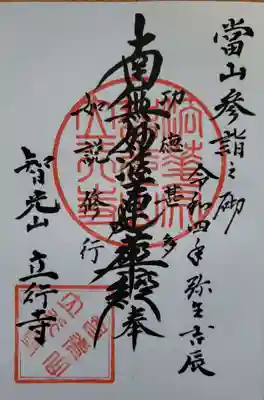 當山参詣之砌
令和四年弥生吉辰
功徳甚多
南無妙法蓮華経
奉
如説修行
智光山
立行寺